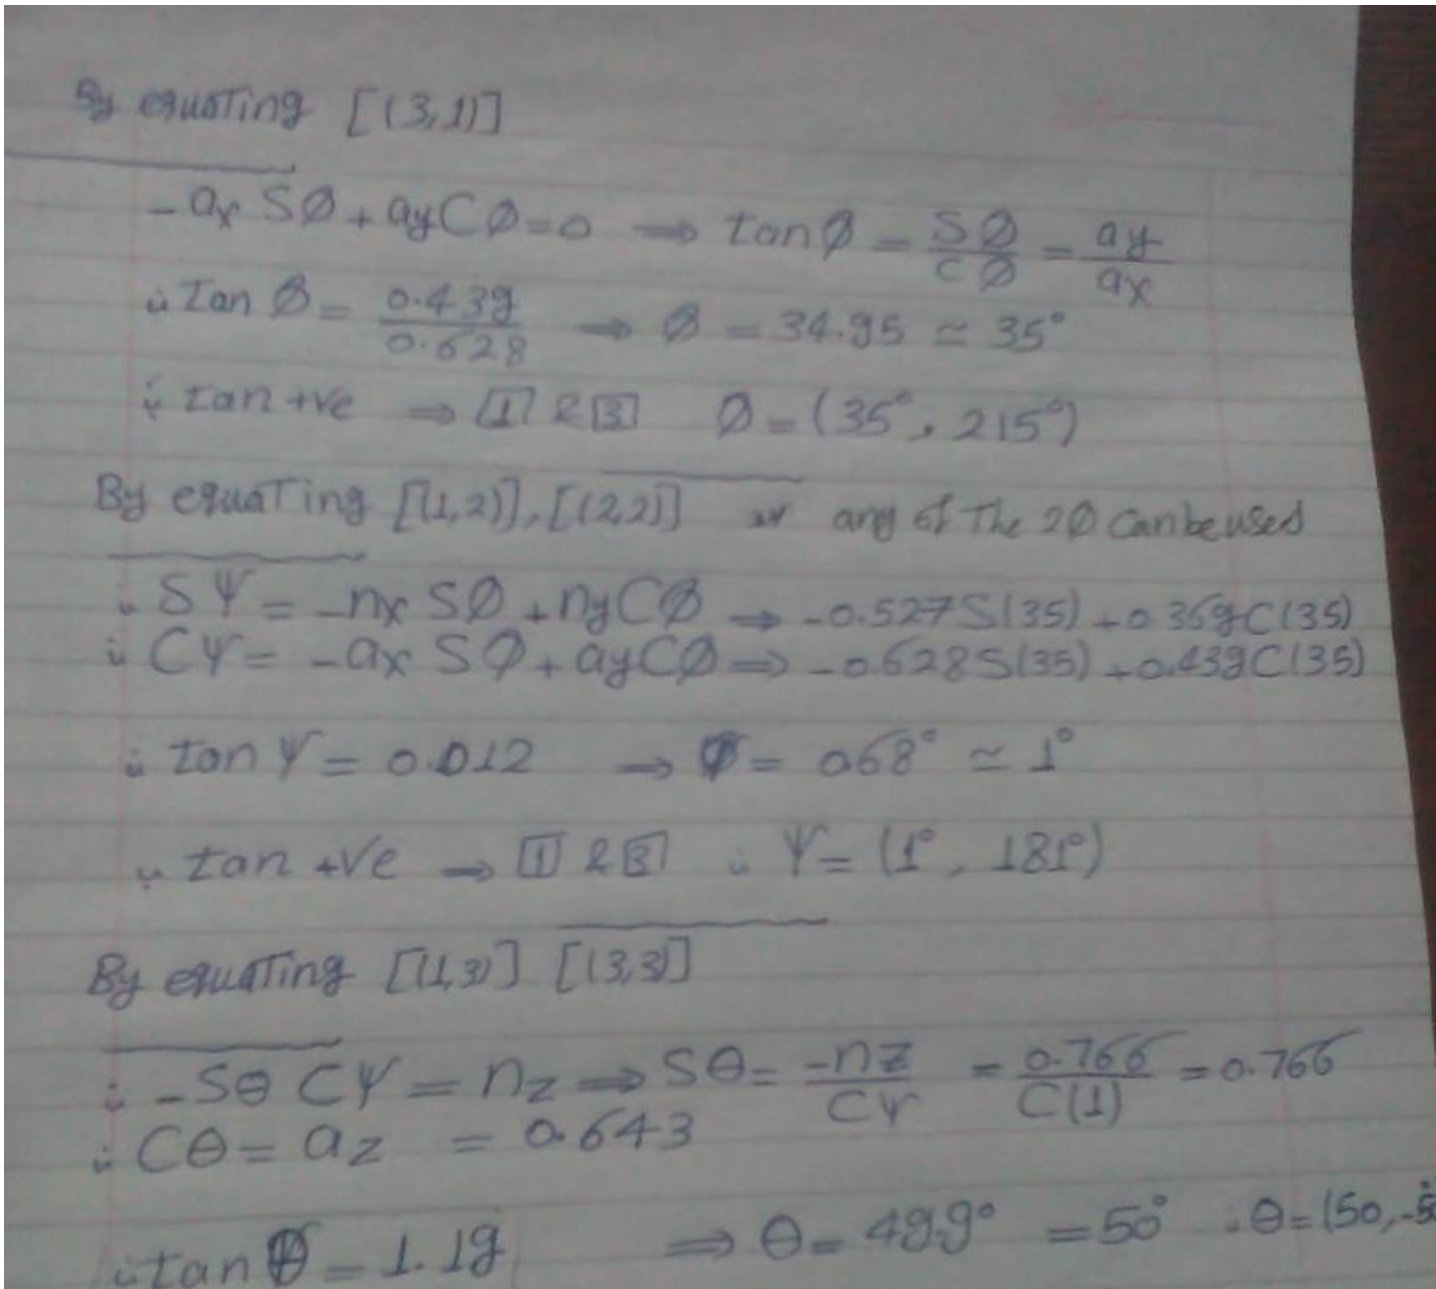 By equating [(3,1)]
-ax SØ + ayCØ=0 ⟹ tanØ = SØ/CØ = ay/ax
∴ Tan Ø = 0.439/0.628 ⟹ Ø = 34.95 ≃ 35°
∵ tan +ve ⟹ [1] & [3] Ø = (35°, 215°)
By equating [(1,2)], [(2,2)] any of The 2Ø can be used
∴ SΨ = -nx SØ + nyCØ ⟹ -0.527S(35) + 0.369C(35)
∴ CΨ = -ax SØ + ayCØ ⟹ -0.628S(35) + 0.439C(35)
∴ tan Ψ = 0.012 ⟹ = 0.68° ≃ 1°
∵ tan +ve ⟹ [1] & [3] ∴ Ψ = (1°, 181°)
By equating [(1,3)] [(3,3)]
∴ -Sθ CΨ = nz ⟹ Sθ = -nz/CΨ = 0.766/C(1) = 0.766
∴ Cθ = az = 0.643
∴ tan θ = 1.19 ⟹ θ = 49.9° = 50° ∴ θ = (50, -5